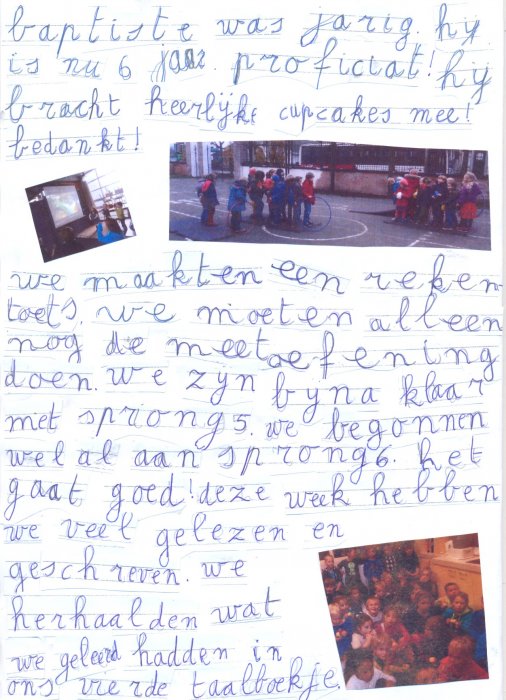 baptiste was jarig. hij
is nu 6 jaar. proficiat! hij
bracht heerlijke cupcakes mee!
bedankt!
we maakten een reken
toets. we moeten alleen
nog de meetoefening
doen. we zyn byna klaar
met sprong 5. we begonnen
wel al aan sprong 6. het
gaat goed! deze week hebben
we veel gelezen en
geschreven. we
herhaalden wat
we geleerd hadden in
ons vierde taalboekje.